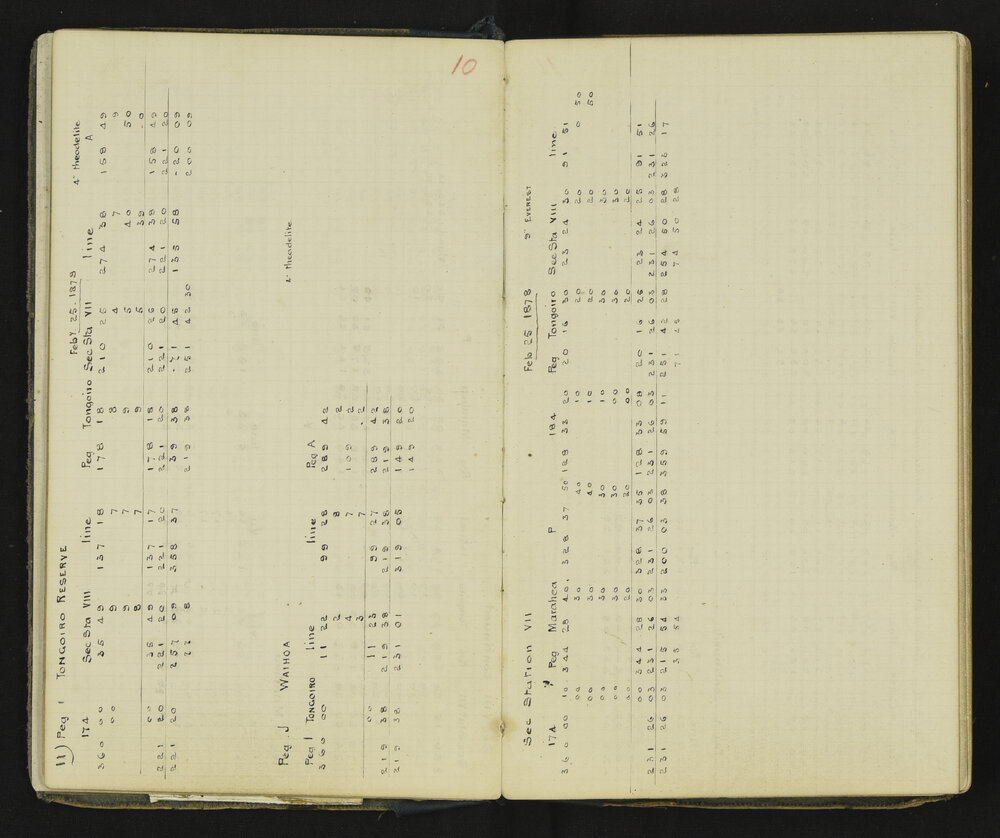 10
11) Peg I TONGOIRO RESERVE
Feby 25. 1878 4" theodelite
174 Sec Sta VIII line Peg Tongoiro Sec Sta VII line A
360 00 00 35 49 137 18 178 18 210 25 274 38 158 49
00 9 7 8 4 7 9
9 7 9 5 40 50
8 7 9 5 39 .0
00 35 49 137 17 178 18 210 25 274 39 158 49
221 20 221 20 221 20 221 20 221 20 221 20 221 20
221 20 257 09 358 37 39 38 71 45 135 58 -20 09
27 8 219 38 251 42 30 200 09
Peg J WAIHOA 4" theodelite
Peg I TONGOIRO line line Peg A
360 00 11 22 99 28 289 42
2 8 2
4 7 109 2
3 7 .2
00 11 23 99 27 289 42
219 38 219 38 219 38 219 38
219 38 231 01 319 05 149 20
149 20
Sec Station VII Feb 25 1878 9" EVEREST
174 Peg Marahea P 184 Peg Tongoiro Sec Sta VIII line
360 00 10. 344 28 40. 328 37 50 128 33 20 20 16 30 23 24 30 91 51
00 30 40 10 20 20 0 50
00 30 40 10 20 20 50
00 30 30 10 30 30
00 30 30 00 30 30
00 20 20 00 20 20
00 344 28 30 328 37 35 128 33 09 20 16 25 23 24 25 91 51
231 26 03 231 26 03 231 26 03 231 26 03 231 26 03 231 26 03 231 26
231 26 03 215 54 33 200 03 38 359 59 11 251 42 28 254 50 28 323 17
35 54 71 45 74 50 28